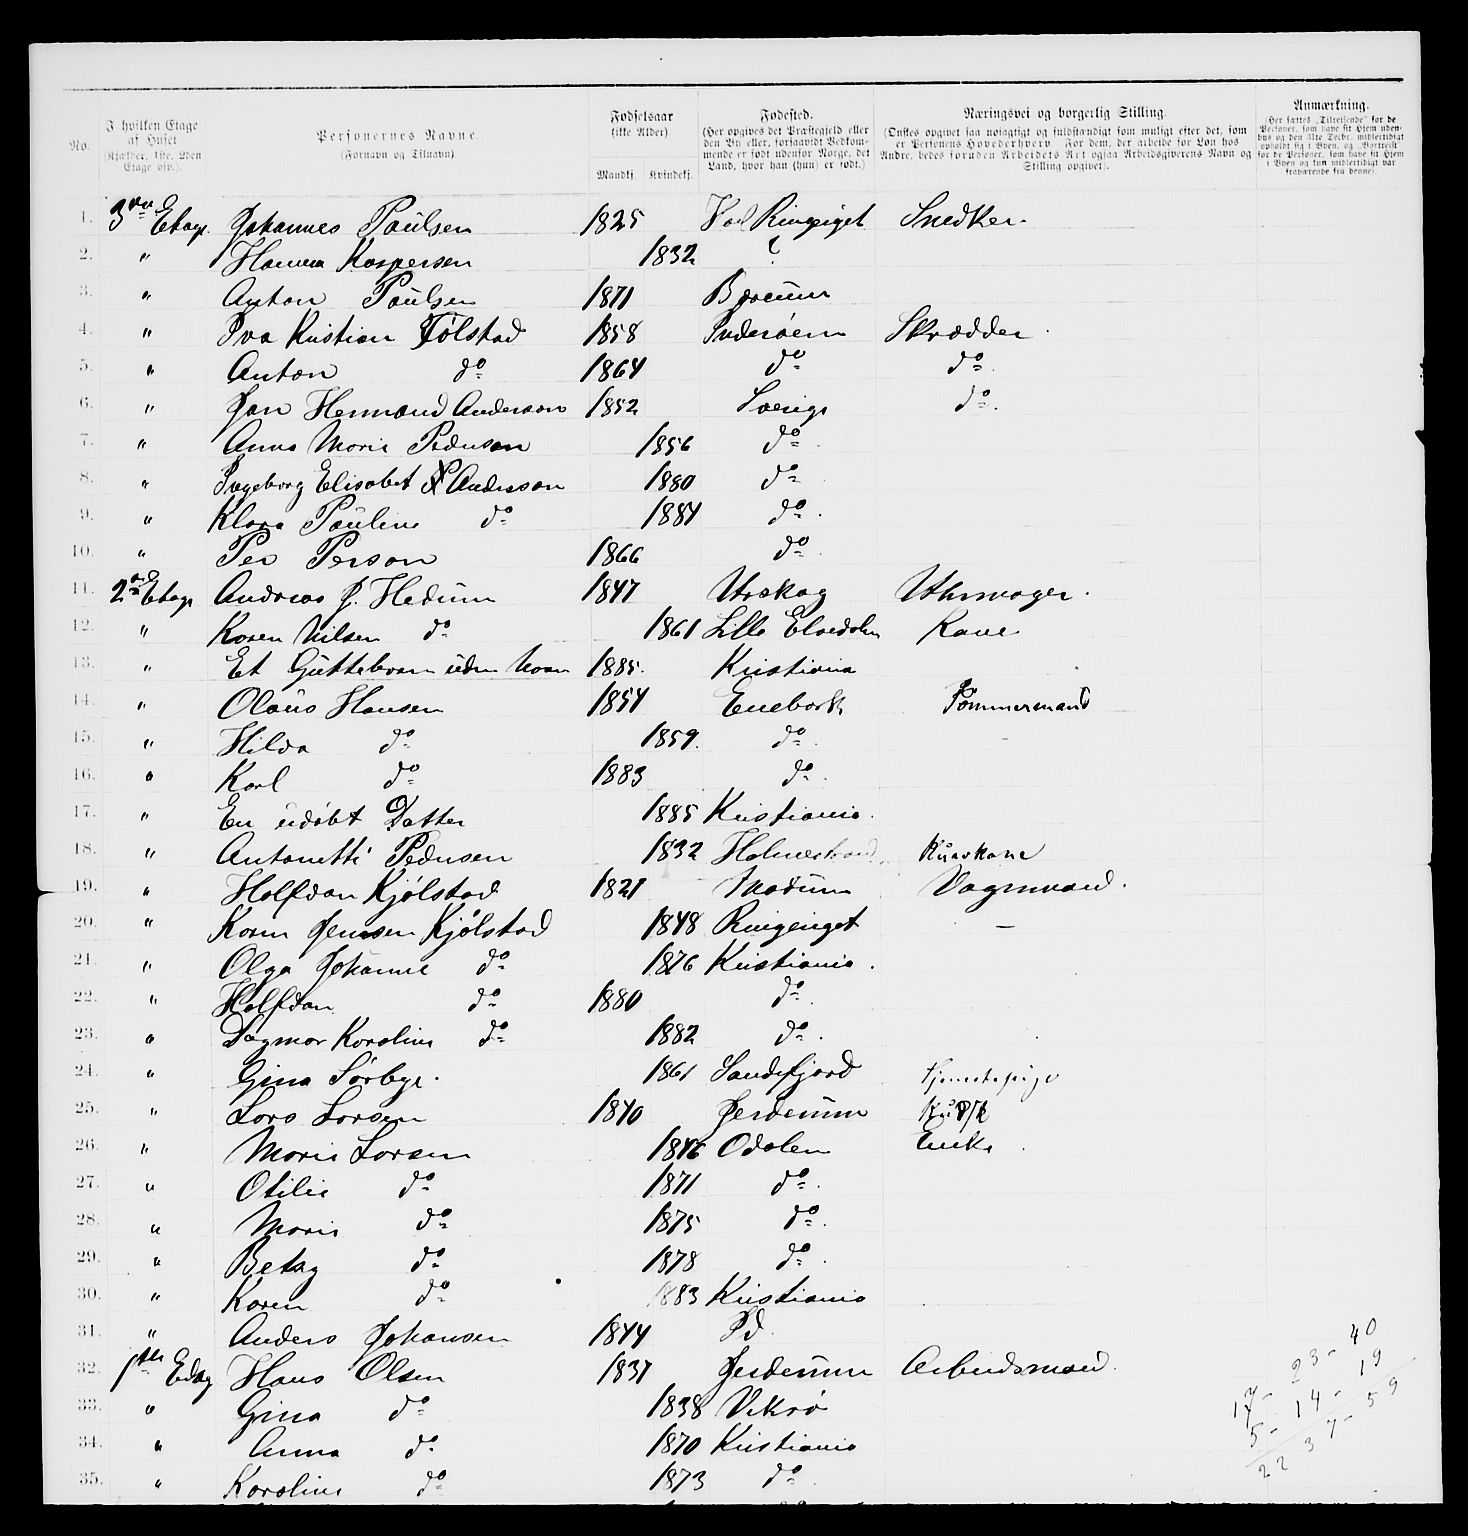 No. I hvilken Etage af Huset (Kjælder, 1ste, 2den Etage osv.). Personernes Navne. (Fornavn og Tilnavn) Fødselsaar (ikke Alder) Mandkj. Kvindekj. Fødested. (Her opgives det Præstegjeld eller den By eller, forsaavidt Vedkommende er født udenfor Norge, det Land, hvor han (hun) er født.) Næringsvei og borgerlig Stilling. (Ønskes opgivet saa nøiagtigt og fuldstændigt som muligt efter det, som er Personens Hovederhverv. For dem, der arbeide for Løn hos Andre, bedes foruden Arbeidets Art ogsaa Arbeidsgiverens Navn og Stilling opgivet). Anmærkning. (Her sættes „Tilreisende" for de Personer, som have sit Hjem udenbys og den 31te Decbr. midlertidigt opholdt sig i Byen, og „Bortreist" for de Personer, som have sit Hjem i Byen og kun midlertidigt var fraværende fra denne).
1. 3die Etage Johannes Paulsen 1825 Ringeriget Snedker
2. " Kaspersen 1832 ?
3. " Anton Paulsen 1871 Bærum
4. " Kristian 1858 Inderøen Skrædder
5. " Anton do 1864 do do
6. " Jan Hermand Anderson 1852 Sverige do
7. " Anna Marie Pedersen 1856 do
8. " Ingeborg Elisabet Anderson 1880 do
9. " Klara Pauline do 1884 do
10. " Per Person 1866 do
11. 2den Etage Andreas J. Hedum 1847 Urskog Uhrmager
12. " Karen Nilsen do 1861 Lille Elvedalen Kone
13. " Et Guttebarn uden Navn 1885 Kristiania
14. " Olaus Hansen 1854 Enebak Tømmermand
15. " Hilda do 1859 do -
16. " Karl do 1883 do
17. " En udøbt Datter 1885 Kristiania
18. " Antonette Pedersen 1832 Holmestrand
19. " Halfdan Kjølstad 1821 Modum Vognmand
20. " Karen Jensen Kjølstad 1848 Ringeriget -
21. " Olga Johanne do 1876 Kristiania
22. " Halfdan do 1880 do
23. " Dagmar Karoline do 1882 do
24. " Gina Sørbye 1861 Sandefjord Tjenestepige
25. " Lars Larsen 1840 Jerdrum
26. " Marie Larsen 1846 Odalen Enke
27. " Otilie do 1871 do
28. " Marie do 1875 do
29. " Betzy do 1878 do
30. " Karen do 1883 Kristiania
31. " Anders Johansen 1844
32. 1ste Etag Hans Olsen 1837 Jerdrum Arbeidsmand
33. " Gina do 1838 Vikrø
34. " Anna do 1870 Kristiania
35. " Karoline do 1873 do
17 - 23 - 40
5 - 14 - 19
22 37 - 59